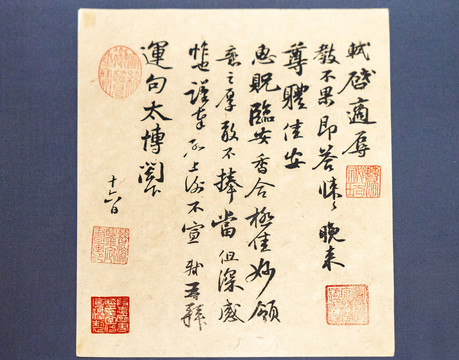 軾啓適辱
教不果即答悚々晚来
尊體佳安
惠貺臨安香合極佳妙領
意之厚敢不捧當但深感
怍也謹奉啓上謝不宣 軾再拜
運句太博閣下
十六日